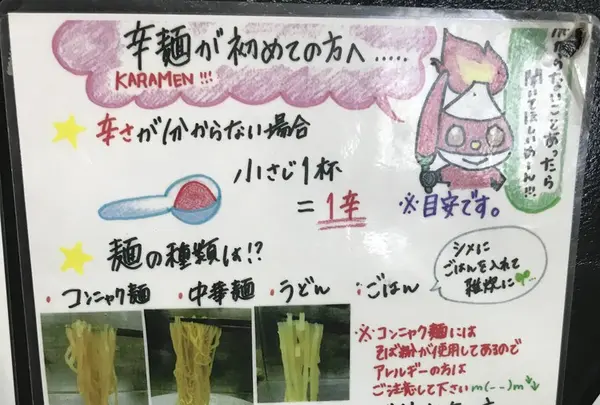 辛麺が初めての方へ.....
KARAMEN!!!
わからないことあったら
聞いてほしいめーん!!!
辛さが分からない場合
小さじ1杯
=1辛
※目安です。
麺の種類は!?
・コンニャク麺
・中華麺
・うどん
・ごはん
シメに
ごはんを入れて
雑炊に
※コンニャク麺には
そば粉が使用してあるので
アレルギーの方は
ご注意して下さいm(--)m